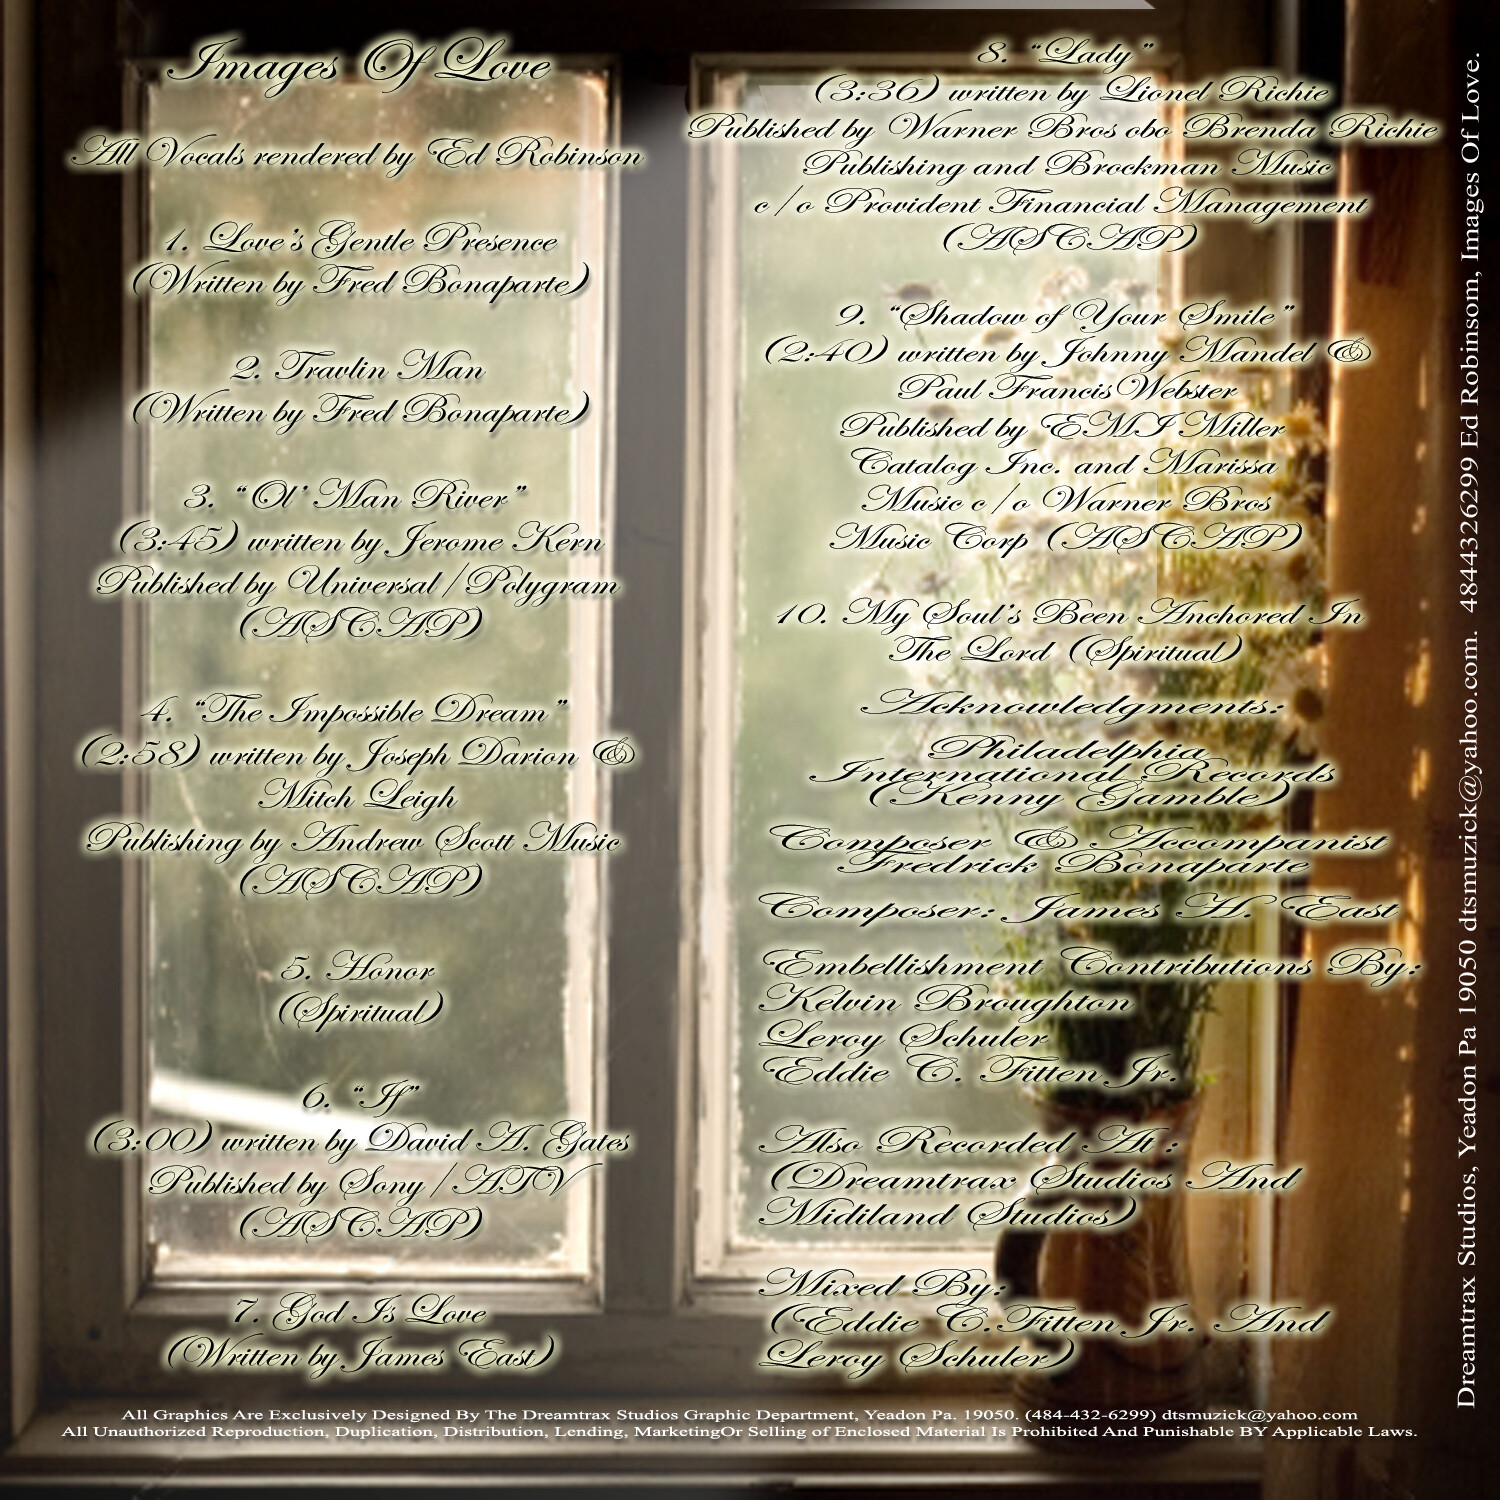 Images Of Love
All Vocals rendered by Ed Robinson
1. Love's Gentle Presence
(Written by Fred Bonaparte)
2. Travlin Man
(Written by Fred Bonaparte)
3. "Ol' Man River"
(3:45) written by Jerome Kern
Published by Universal/Polygram
(ASCAP)
4. "The Impossible Dream"
(2:58) written by Joseph Darion &
Mitch Leigh
Publishing by Andrew Scott Music
(ASCAP)
5. Honor
(Spiritual)
6. "If"
(3:00) written by David A. Gates
Published by Sony/ATV
(ASCAP)
7. God Is Love
(Written by James East)
8. "Lady"
(3:36) written by Lionel Richie
Published by Warner Bros obo Brenda Richie
Publishing and Brockman Music
c/o Provident Financial Management
(ASCAP)
9. "Shadow of Your Smile"
(2:40) written by Johnny Mandel &
Paul Francis Webster
Published by EMI Miller
Catalog Inc. and Marissa
Music c/o Warner Bros
Music Corp (ASCAP)
10. My Soul's Been Anchored In
The Lord (Spiritual)
Acknowledgments:
Philadelphia
International Records
(Kenny Gamble)
Composer & Accompanist
Fredrick Bonaparte
Composer: James H. East
Embellishment Contributions By:
Kelvin Broughton
Leroy Schuler
Eddie C. Fitten Jr.
Also Recorded At :
(Dreamtrax Studios And
Midiland Studios)
Mixed By:
(Eddie C.Fitten Jr. And
Leroy Schuler)
All Graphics Are Exclusively Designed By The Dreamtrax Studios Graphic Department, Yeadon Pa. 19050. (484-432-6299) dtsmuzick@yahoo.com
All Unauthorized Reproduction, Duplication, Distribution, Lending, MarketingOr Selling of Enclosed Material Is Prohibited And Punishable BY Applicable Laws.
Dreamtrax Studios, Yeadon Pa 19050 dtsmuzick@yahoo.com. 4844326299 Ed Robinsom, Images Of Love.